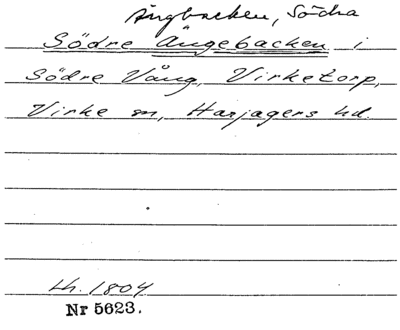 Ängbacken, Södra
Södre Ängebacken i
Södre Vång, Virketorp,
Virke sn, Harjagers hd.
Lh. 1804
Nr 5623.